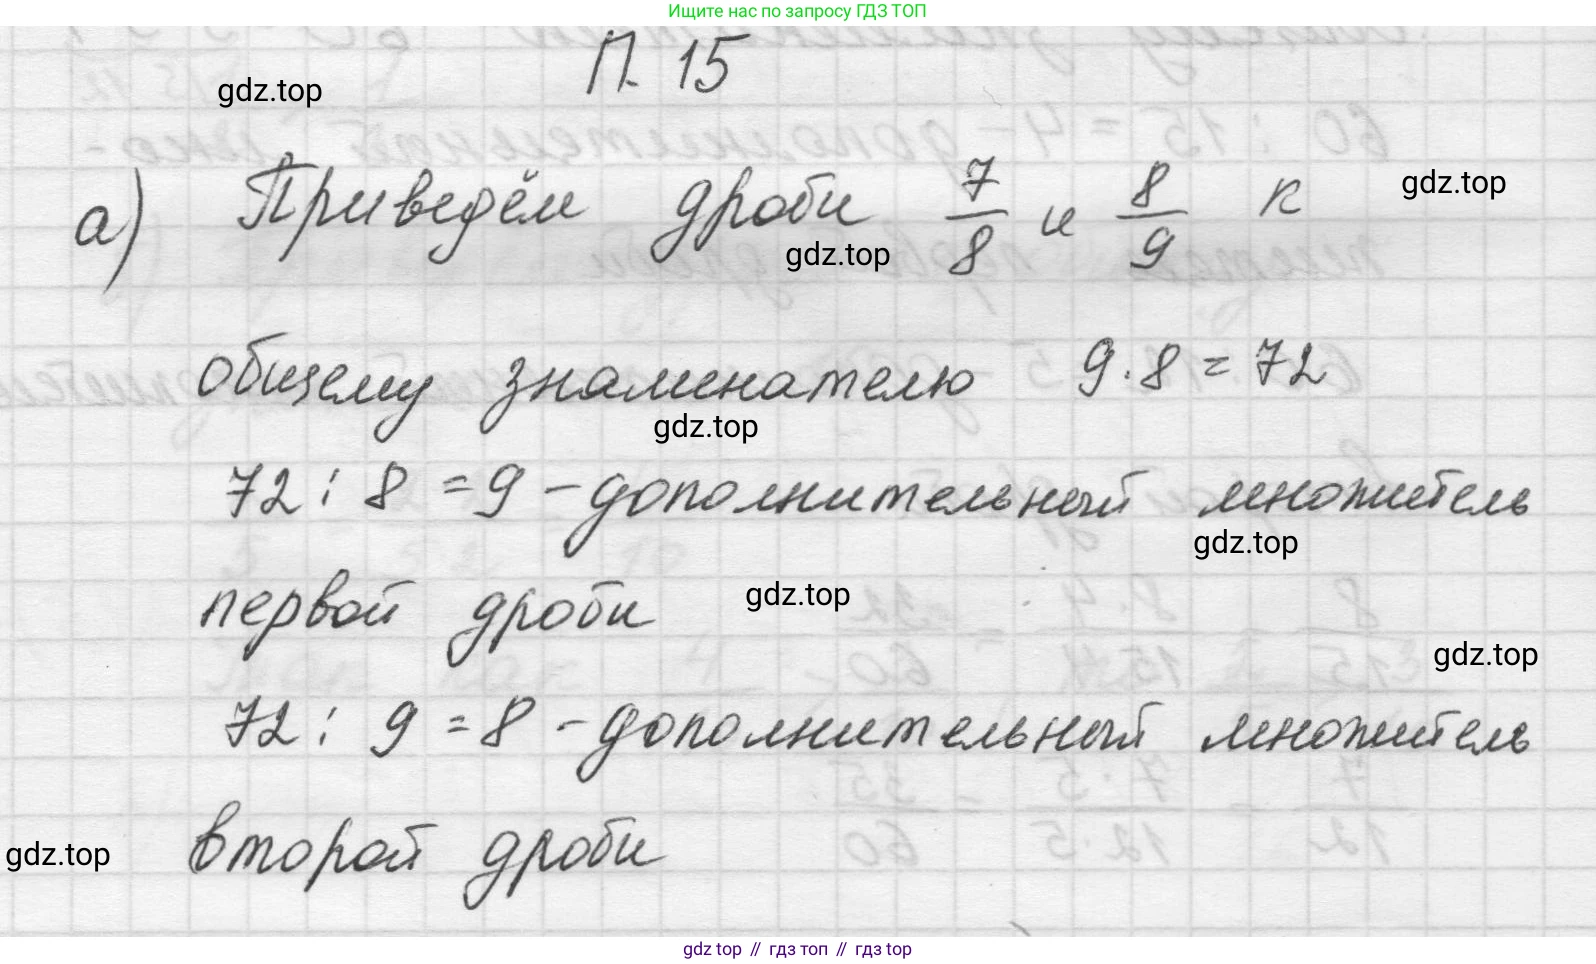 Ищите нас по запросу ГДЗ ТОП
П. 15
gdz.top
а) Приведём дроби 7/8 и 8/9 к
gdz.top
gdz.top
общему знаменателю 9·8 = 72
gdz.top
72 : 8 = 9 – дополнительный множитель
gdz.top
первой дроби
gdz.top
gdz.top
72 : 9 = 8 – дополнительный множитель
второй дроби
gdz.top
gdz top // гдз топ // gdz top